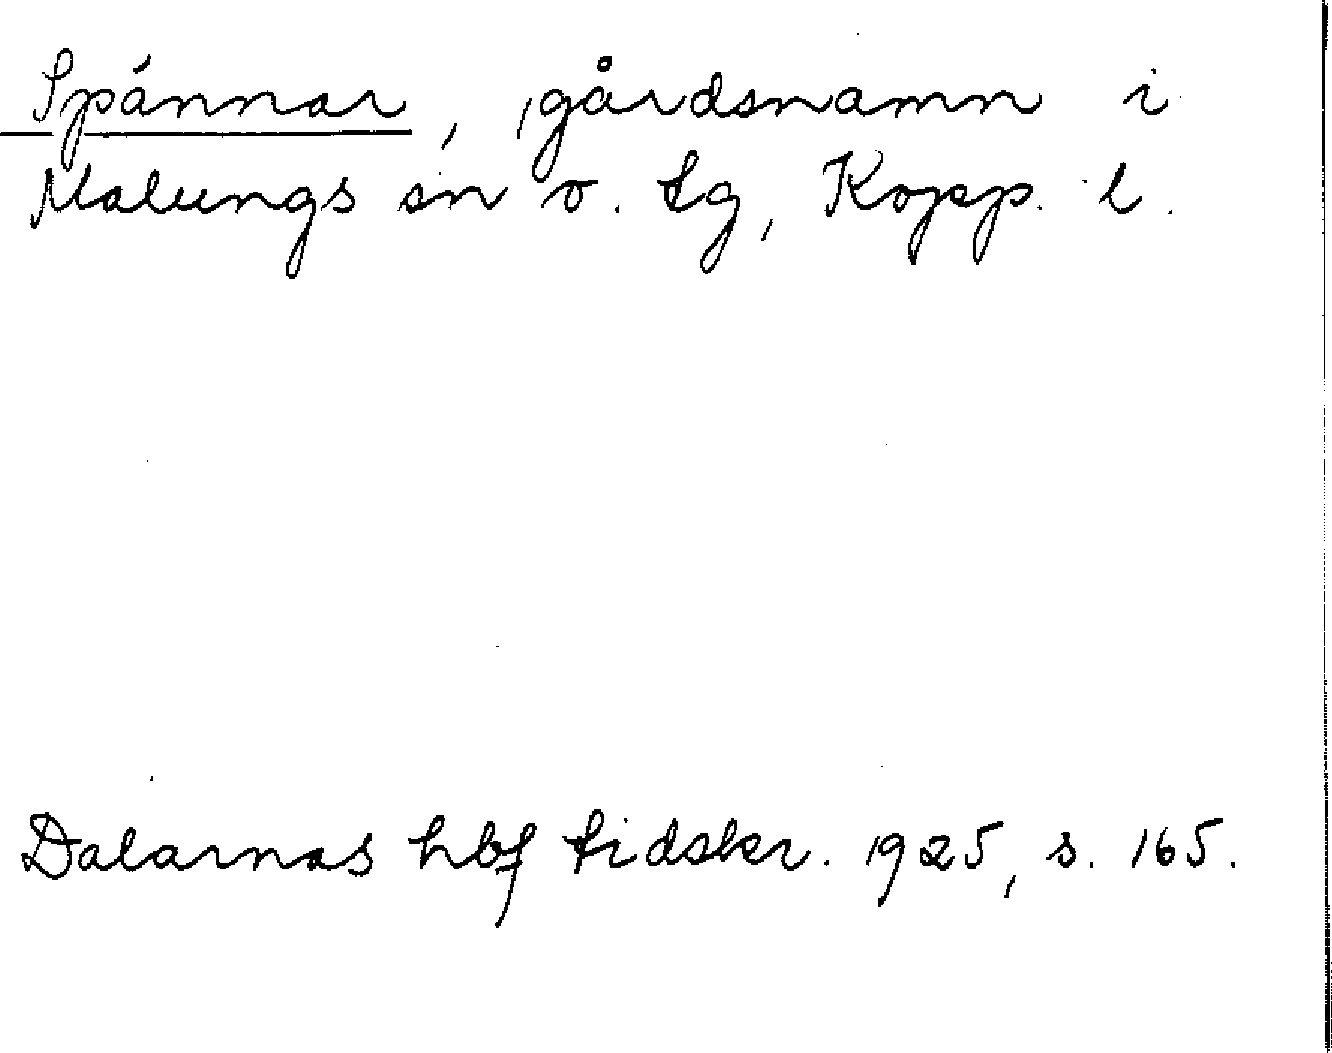 Spánnar, gårdsnamn i
Malungs sn o. tg, Kopp. l.
Dalarnas hbf tidskr. 1925, s. 165.